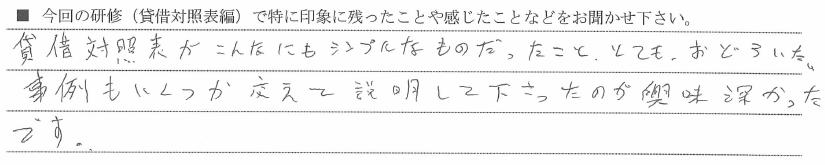 ■ 今回の研修（貸借対照表編）で特に印象に残ったことや感じたことなどをお聞かせ下さい。
貸借対照表がこんなにもシンプルなものだったこと、とても、おどろいた。
事例もいくつか交えて説明して下さったのが興味深かった
です。